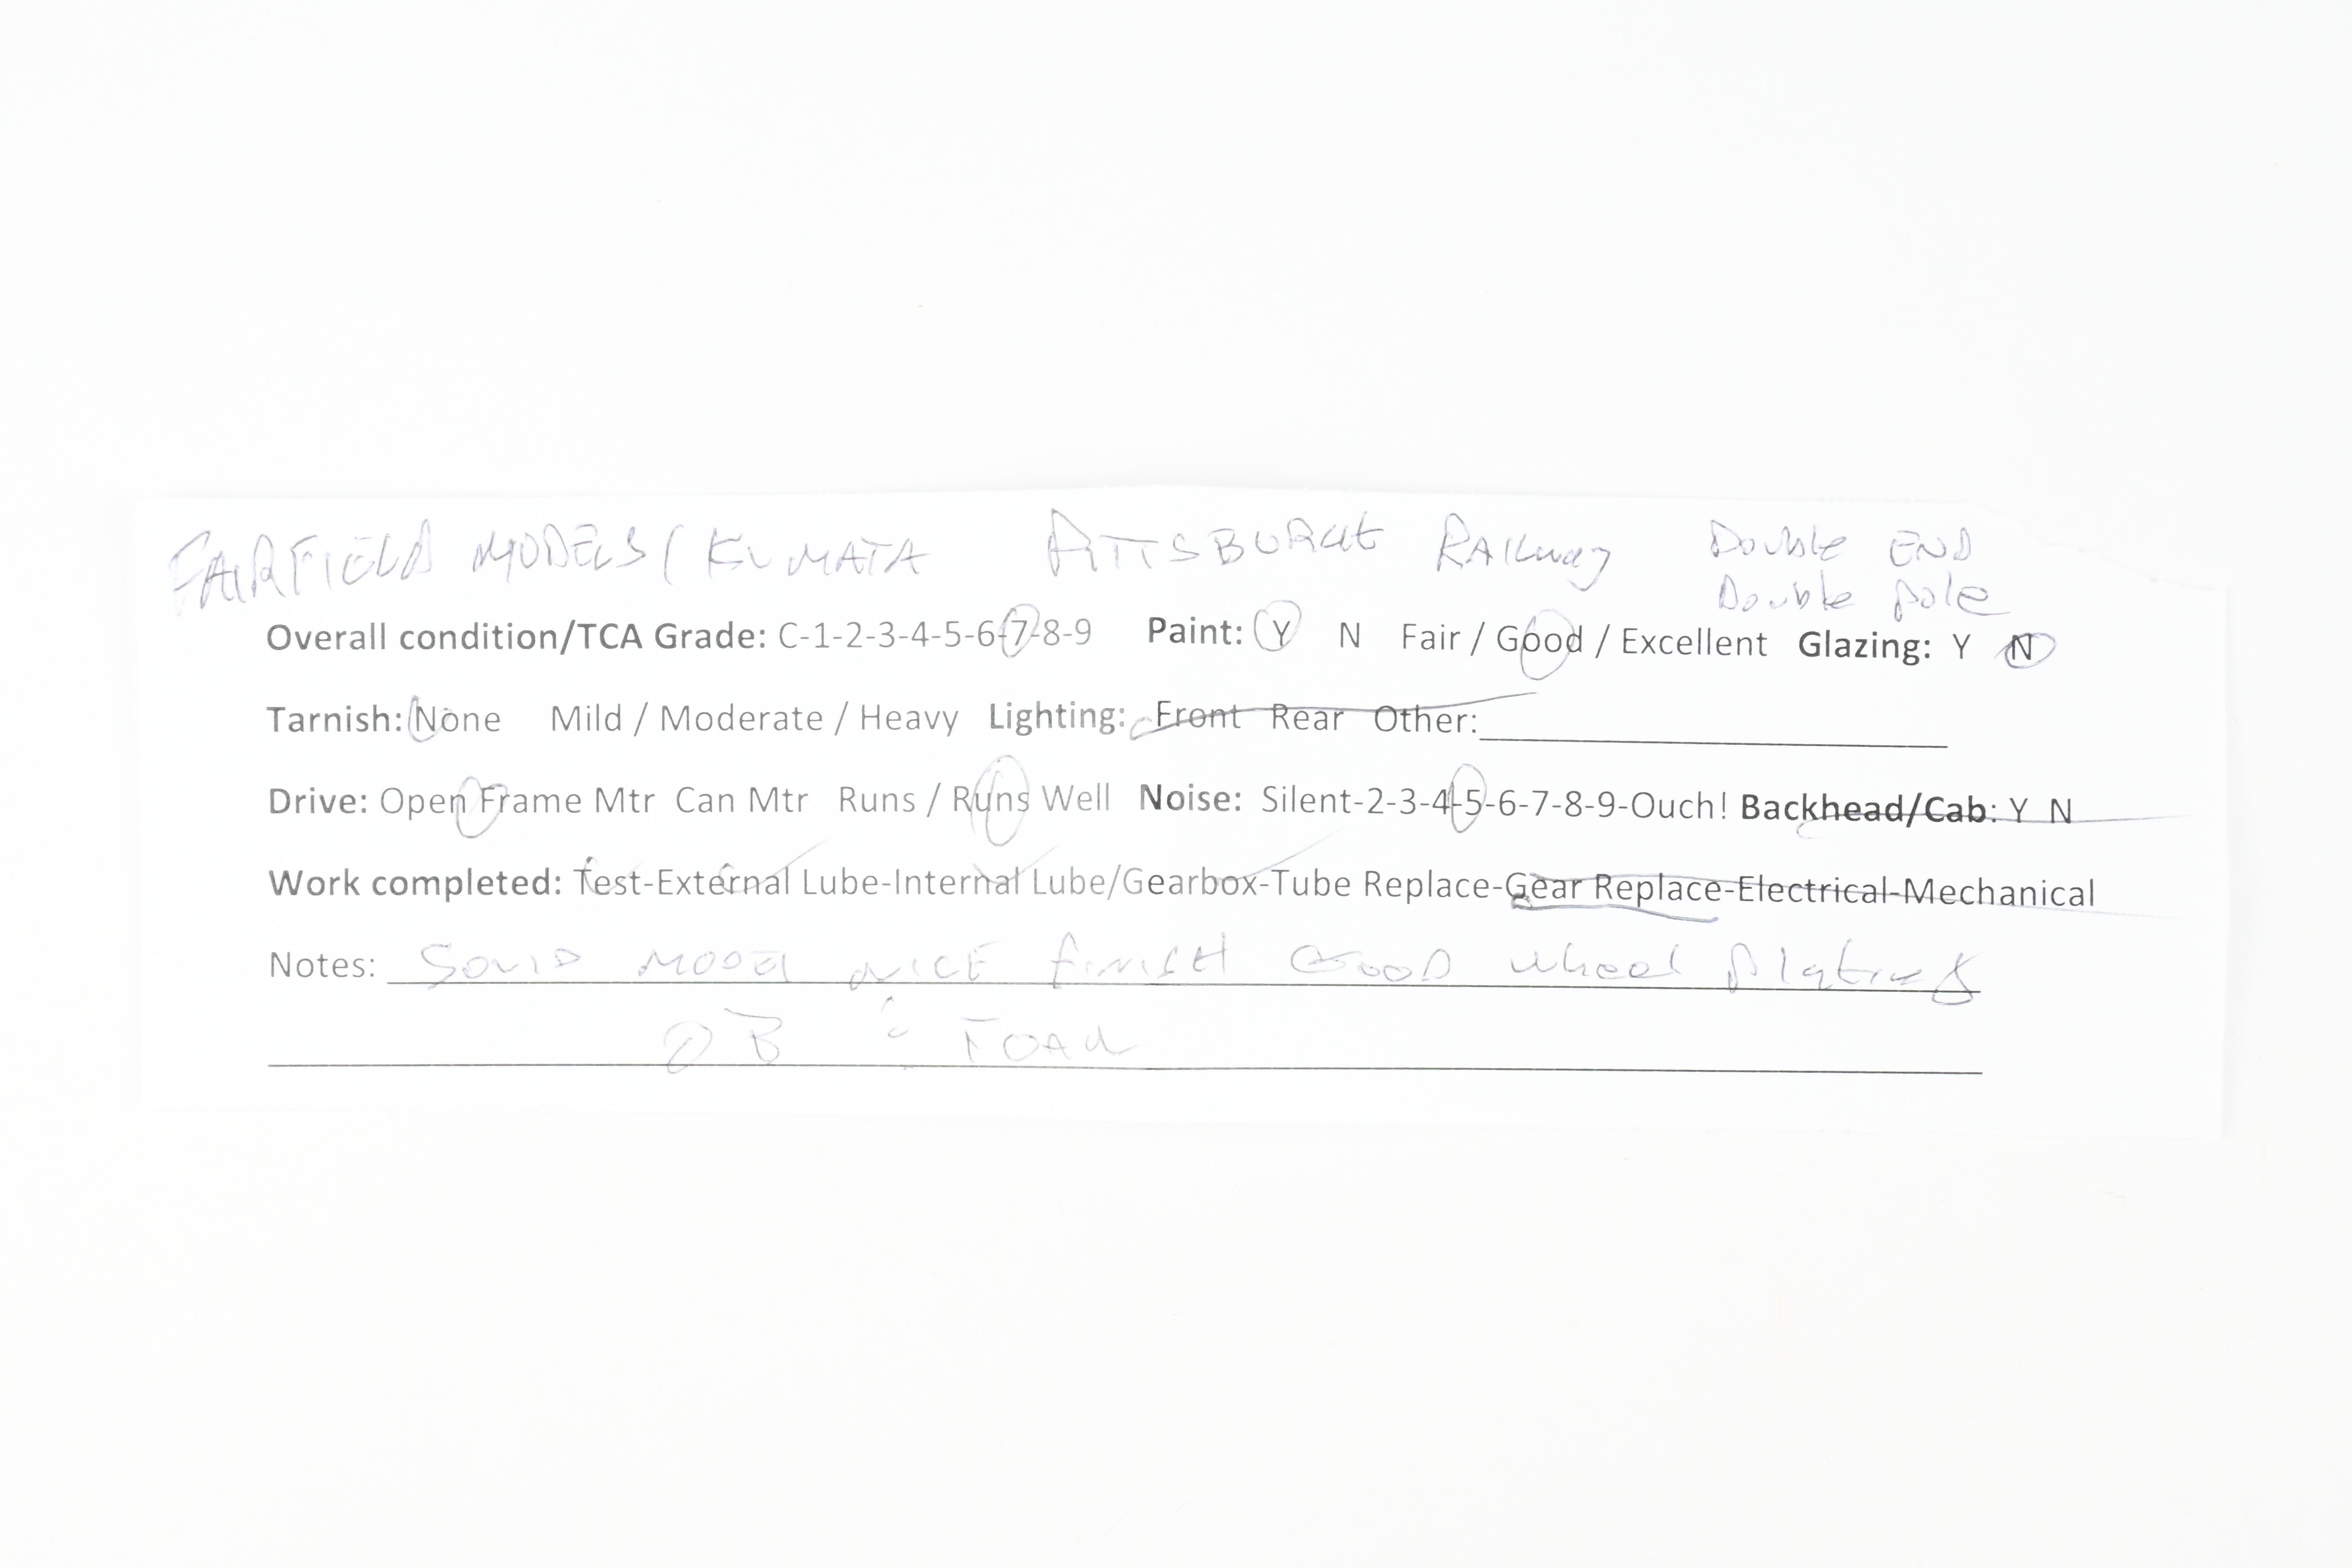 FAIRFIELD MODELS / KUMATA PITTSBURGH RAILWAY Double END
Double pole
Overall condition/TCA Grade: C-1-2-3-4-5-6-7-8-9 Paint: Y N Fair / Good / Excellent Glazing: Y N
Tarnish: None Mild / Moderate / Heavy Lighting: Front Rear Other:
Drive: Open Frame Mtr Can Mtr Runs / Runs Well Noise: Silent-2-3-4-5-6-7-8-9-Ouch! Backhead/Cab: Y N
Work completed: Test-External Lube-Internal Lube/Gearbox-Tube Replace-Gear Replace-Electrical-Mechanical
Notes: SOLID MODEL NICE finish GOOD wheel plating
OB FOAM